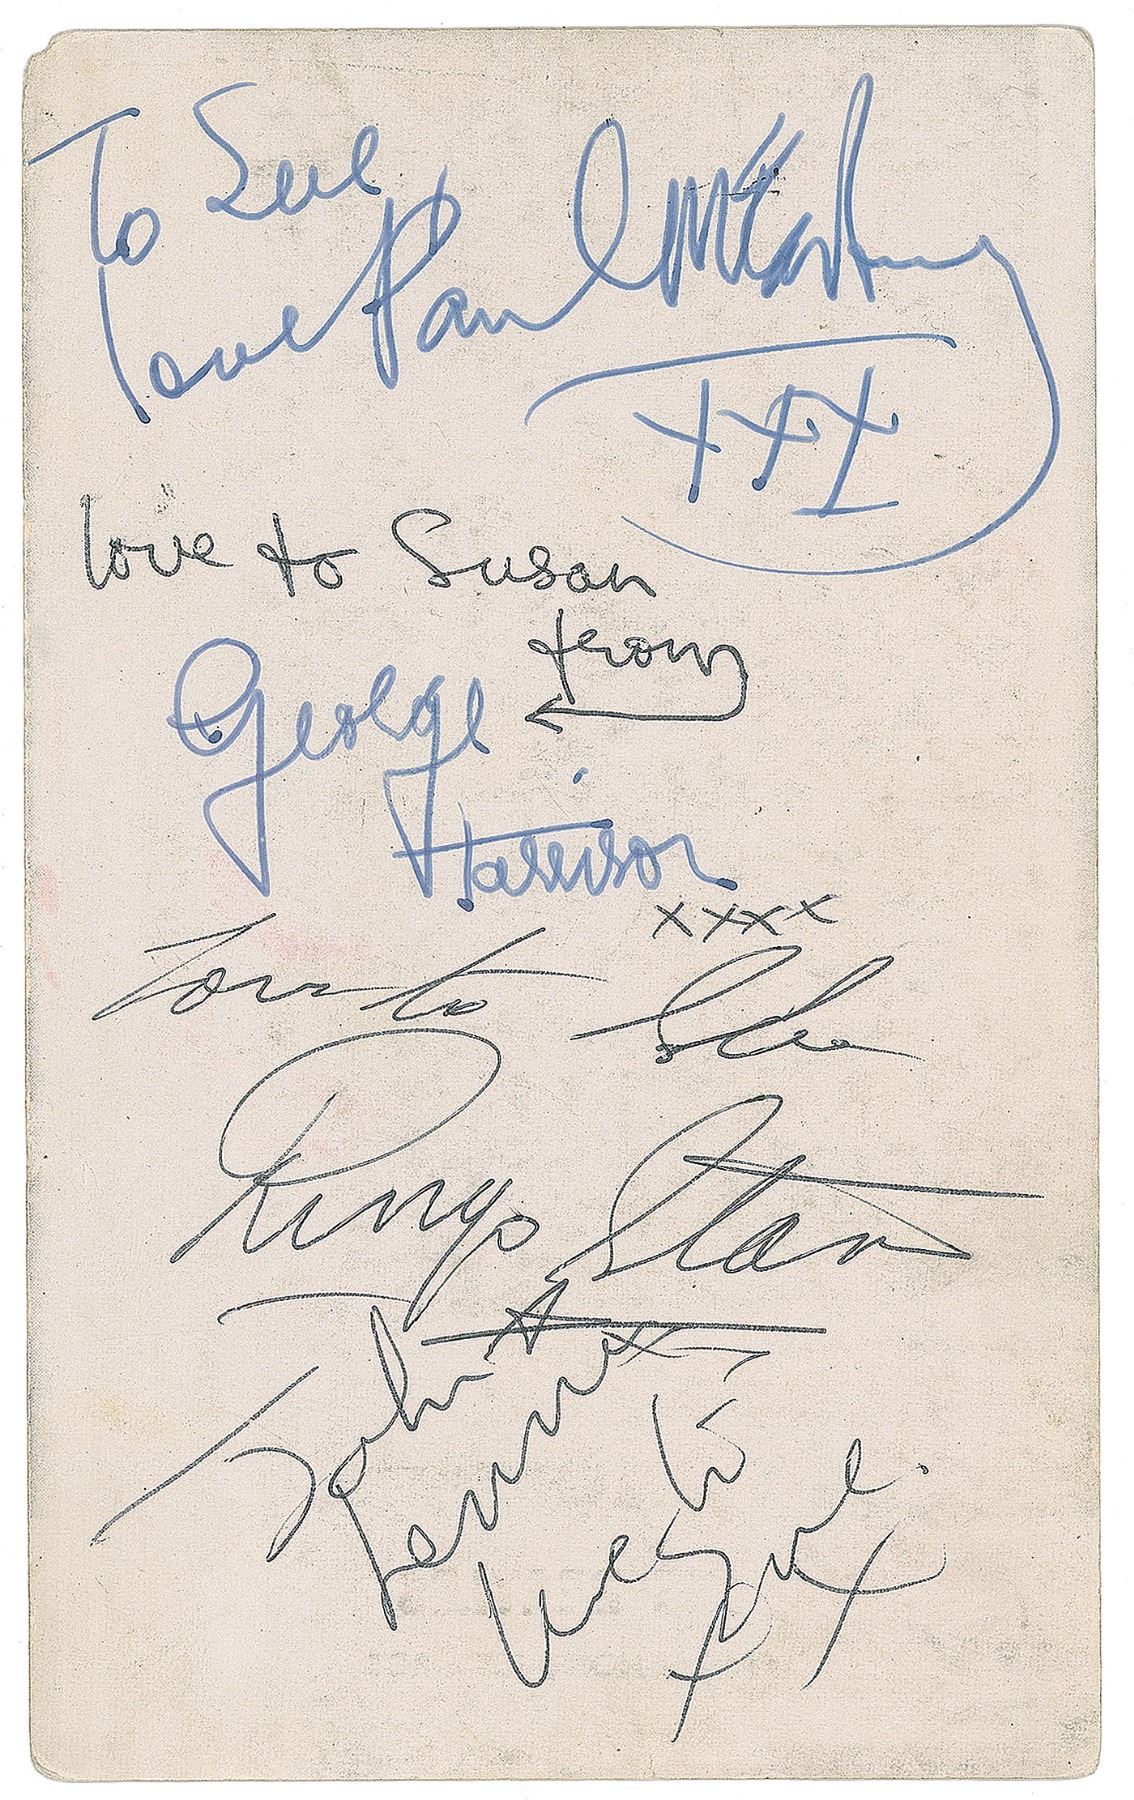 To Sue
love Paul McCartney
XXX
love to Susan
from
George
Harrison
xxxx
Love to Sue
Ringo Starr
John
Lennon
love
to
Sue
x x